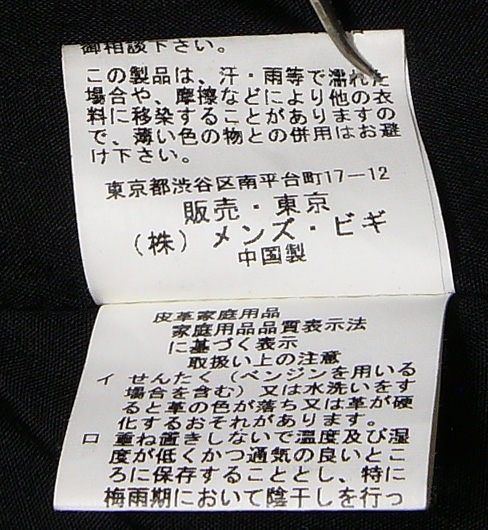 御相談下さい。
この製品は、汗・雨等で濡れた
場合や、摩擦などにより他の衣
料に移染することがありますの
で、薄い色の物との併用はお避
け下さい。
東京都渋谷区南平台町17−12
販売・東京
（株）メンズ・ビギ
中国製
皮革家庭用品
家庭用品品質表示法
に基づく表示
取扱い上の注意
イ せんたく（ベンジンを用いる
場合を含む）又は水洗いをす
ると革の色が落ち又は革が硬
化するおそれがあります。
ロ 重ね置きしないで温度及び湿
度が低くかつ通気の良いとこ
ろに保存することとし、特に
梅雨期において陰干しを行っ